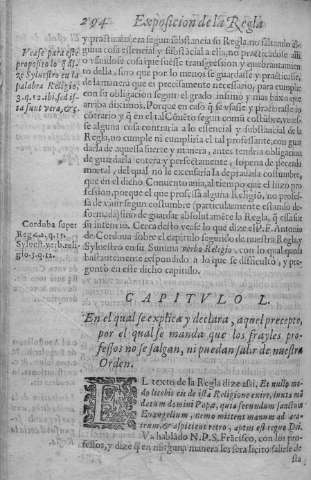 294 Exposicion de la Regla
y practicaua, era segun substancia su Regla, no faltando de
guna cosa essencial y substācial a ella, no practicādose alli
o vsandose cosa que fuesse transgression y quebrantamien
to della, sino que por lo menos se guardasse y practicasse,
de la manera que es precisamente necessario, para cumplir
con su obligacion segun el grado infimo y mas baxo que
arriba diximos. Porque en caso q̄ se vsasse y practicasse lo
contrario y q̄ en el tal Cōuēto segun comū costūbre, vuies-
se alguna cosa contraria a lo essencial y substancial de la
Regla, no cumple ni cumpliria el tal professante, con guar
darla de aquella suerte y manera, antes tendria obligacion
de guardarla entera y perfectamente, sopena de pecado
mortal, del qual no le excusaria la deprauada costumbre,
que en el dicho Conuento auia, al tiempo que el hizo pro
fession, porque el que professa alguna Religiō, no profes-
sa de viuir segun costumbre (particularmente estando de-
formada) sino de guardar absolutamēte la Regla, q̄ essa fue
su intento. Cerca desto vease lo que dize el P. F. Antonio
de Cordoua sobre el capitulo segundo de nuestra Regla, y
Syluestro en su Summa verbo Religio, con lo qual queda
bastantemente respondido a lo que se difficultó, y pregun
tó en este dicho capitulo.
Vease para este
proposito lo q̄ di-
ze Syluestro en la
palabra Religio,
3. q. 12. ibi, sed is-
ta sunt vera, &c.
Corduba super
Reg. c. 2. q. 15.
Syluest. verb. reli
gio. 3. q. 12.
CAPITVLO L.
En el qual se explica y declara, aquel precepto,
por el qual se manda que los frayles pro-
fessos no se salgan, ni puedan salir de nuestra
Orden.
EL texto de la Regla dize assi. Et nullo mo-
do licebit eis de ista Religione exire, iuxta mā
datum domini Papæ, quia secundum sanctum
Euangelium, nemo mittens manum ad ara-
trum, & aspiciens retro, aptus est regno Dei.
Va hablādo N. P. S. Frācisco, con los pro-
fessos, y dize q̄ en ninguna manera les sera licito salirse de
sta